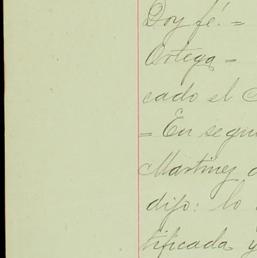 Doy fé. =
Ortega =
cado el
= En segui
Martinez
dijo: lo
tificada y